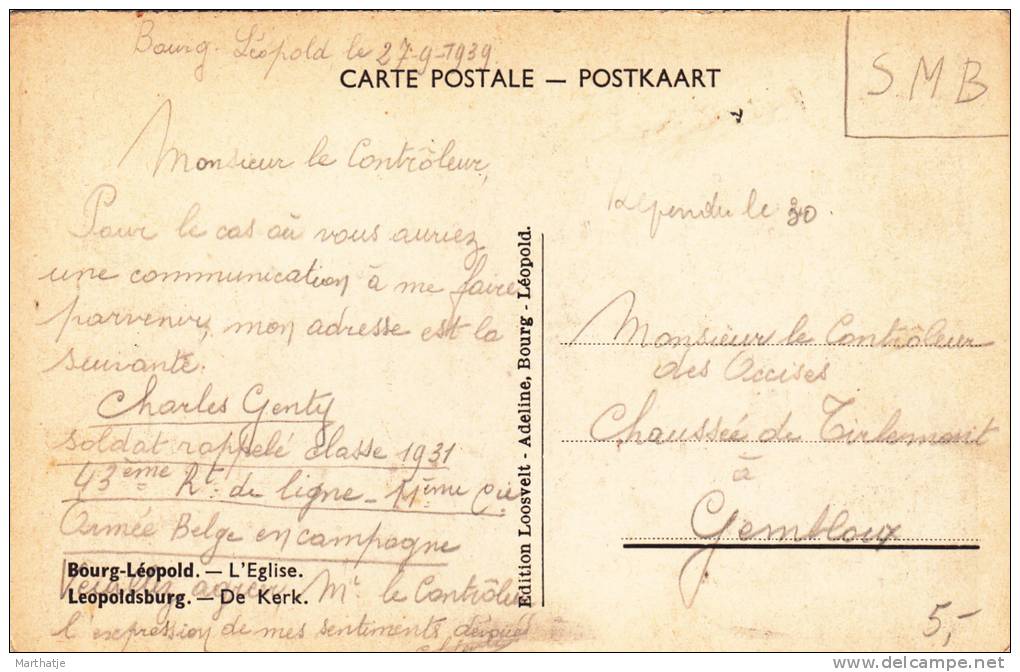 Bourg-Léopold le 27-9-1939
CARTE POSTALE — POSTKAART
S.M.B
Monsieur le Contrôleur,
Pour le cas où vous auriez
une communication à me faire
parvenir, mon adresse est la
suivante.
Charles Genty
soldat rappelé classe 1931
43ème Rt. de ligne - 11ème Cie
Armée Belge en campagne
Veuillez agréer, Mr le Contrôleur
l'expression de mes sentiments dévoués
Bourg-Léopold. — L'Eglise.
Leopoldsburg. — De Kerk.
Edition Loosvelt - Adeline, Bourg - Léopold.
le 30.
Monsieur le Contrôleur
des Accises
Chaussée de Tirlemont
à
Gembloux
5,-
Marthatje
delcampe.net